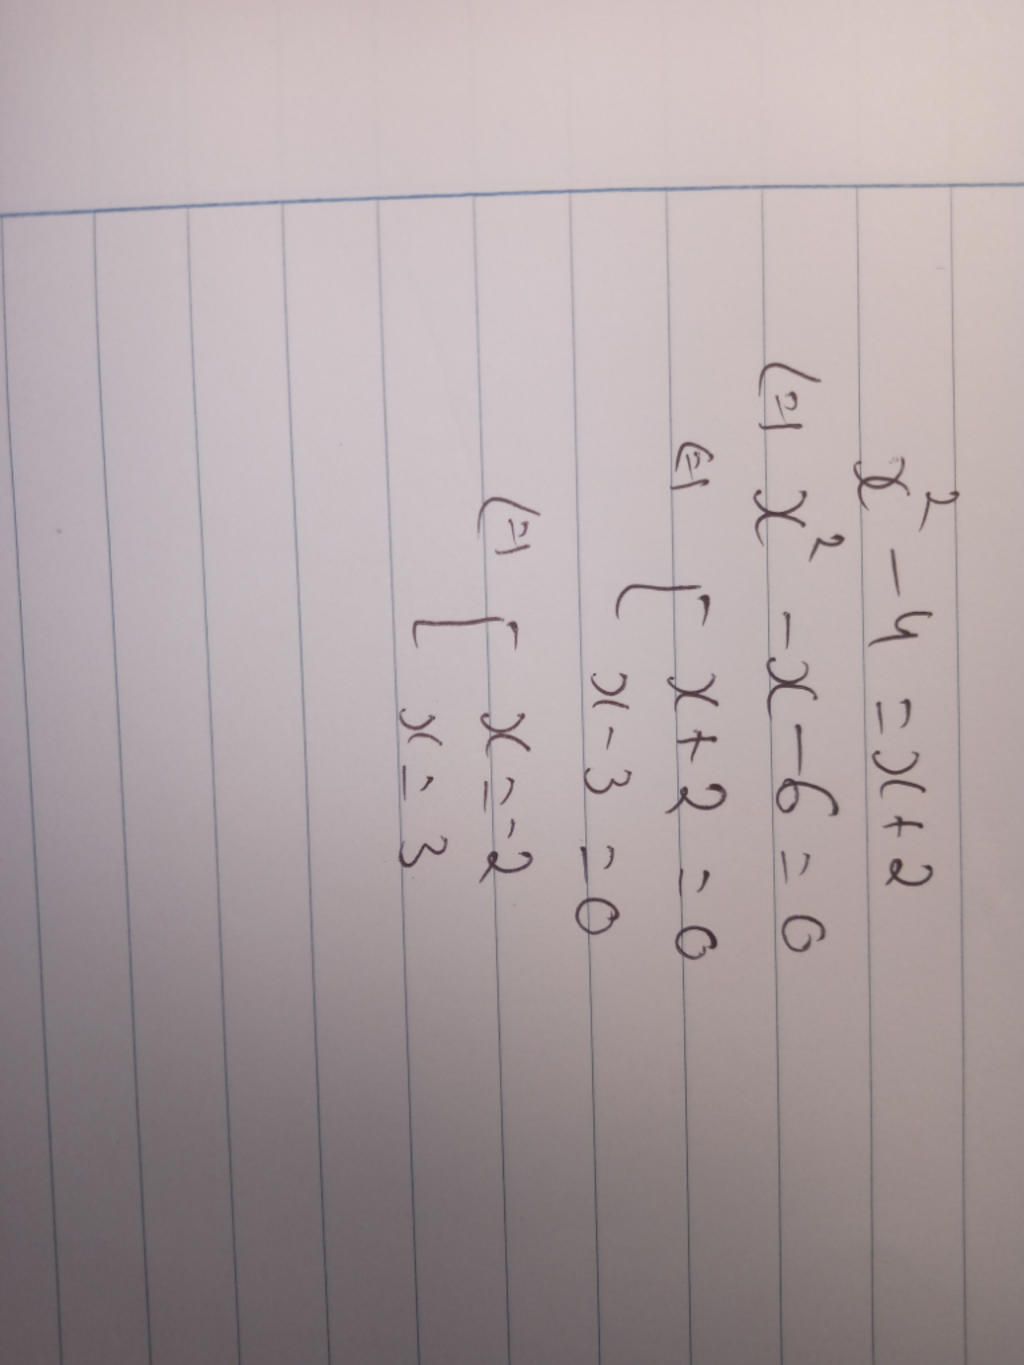 x² - 4 = x + 2
(=) x² - x - 6 = 0
(=) [ x + 2 = 0
x - 3 = 0
(=) [ x = -2
x = 3